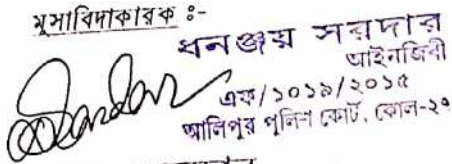 মুসাবিদাকারক :-
ধনঞ্জয় সরদার
আইনজিবী
এফ/১০১৯/২০১৫
আলিপুর পুলিশ কোর্ট, কোল-২৭